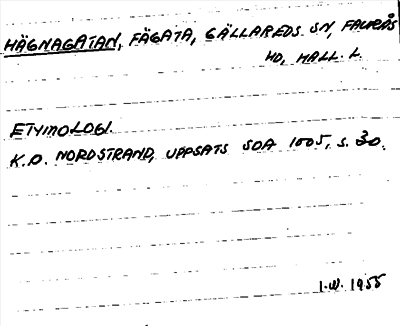 HÄGNAGATAN, FÄGATA, GÄLLAREDS SN, FAURÅS
HD, HALL. L.
ETYMOLOGI.
K.D. NORDSTRAND, UPPSATS SOA 1005, S. 30.
I.W. 1955